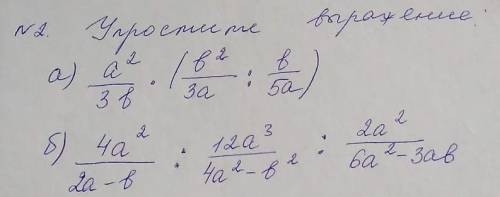 №2. Упростите выражение:
а) a²/3b · (b²/3a : b/5a)
б) 4a²/(2a-b) : 12a³/(4a²-b²) : 2a²/(6a²-3ab)